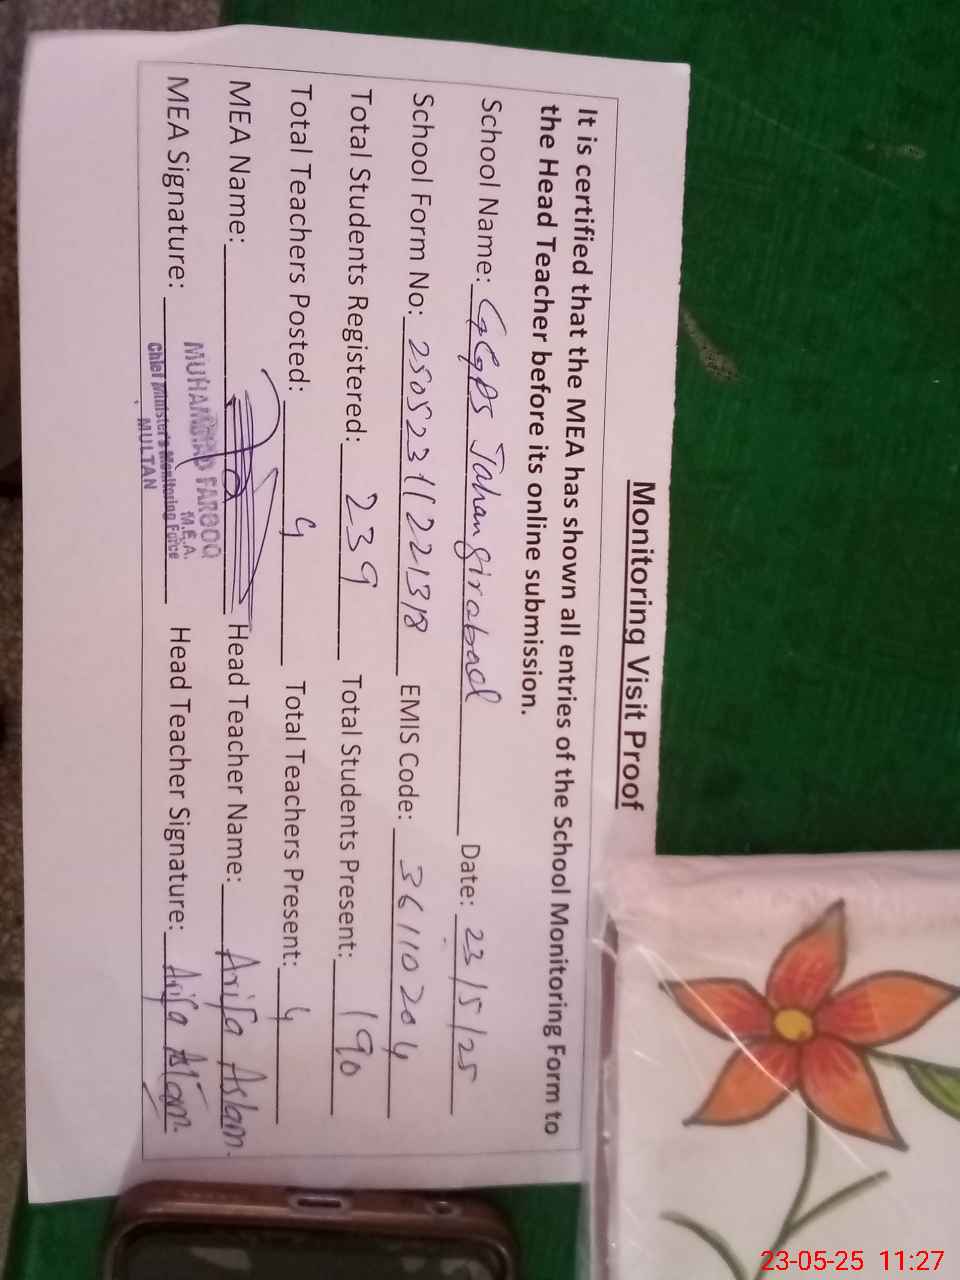 Monitoring Visit Proof
It is certified that the MEA has shown all entries of the School Monitoring Form to
the Head Teacher before its online submission.
School Name: GGPS Jahangirabad Date: 23/5/25
School Form No: 25052311221318 EMIS Code: 36110204
Total Students Registered: 239 Total Students Present: 190
Total Teachers Posted: 4 Total Teachers Present: 4
MEA Name: Head Teacher Name: Arifa Aslam.
MEA Signature: Head Teacher Signature: Arifa Aslam.
MUHAMMAD FAROOQ
M.E.A.
Chief Minister's Monitoring Force
MULTAN
23-05-25 11:27